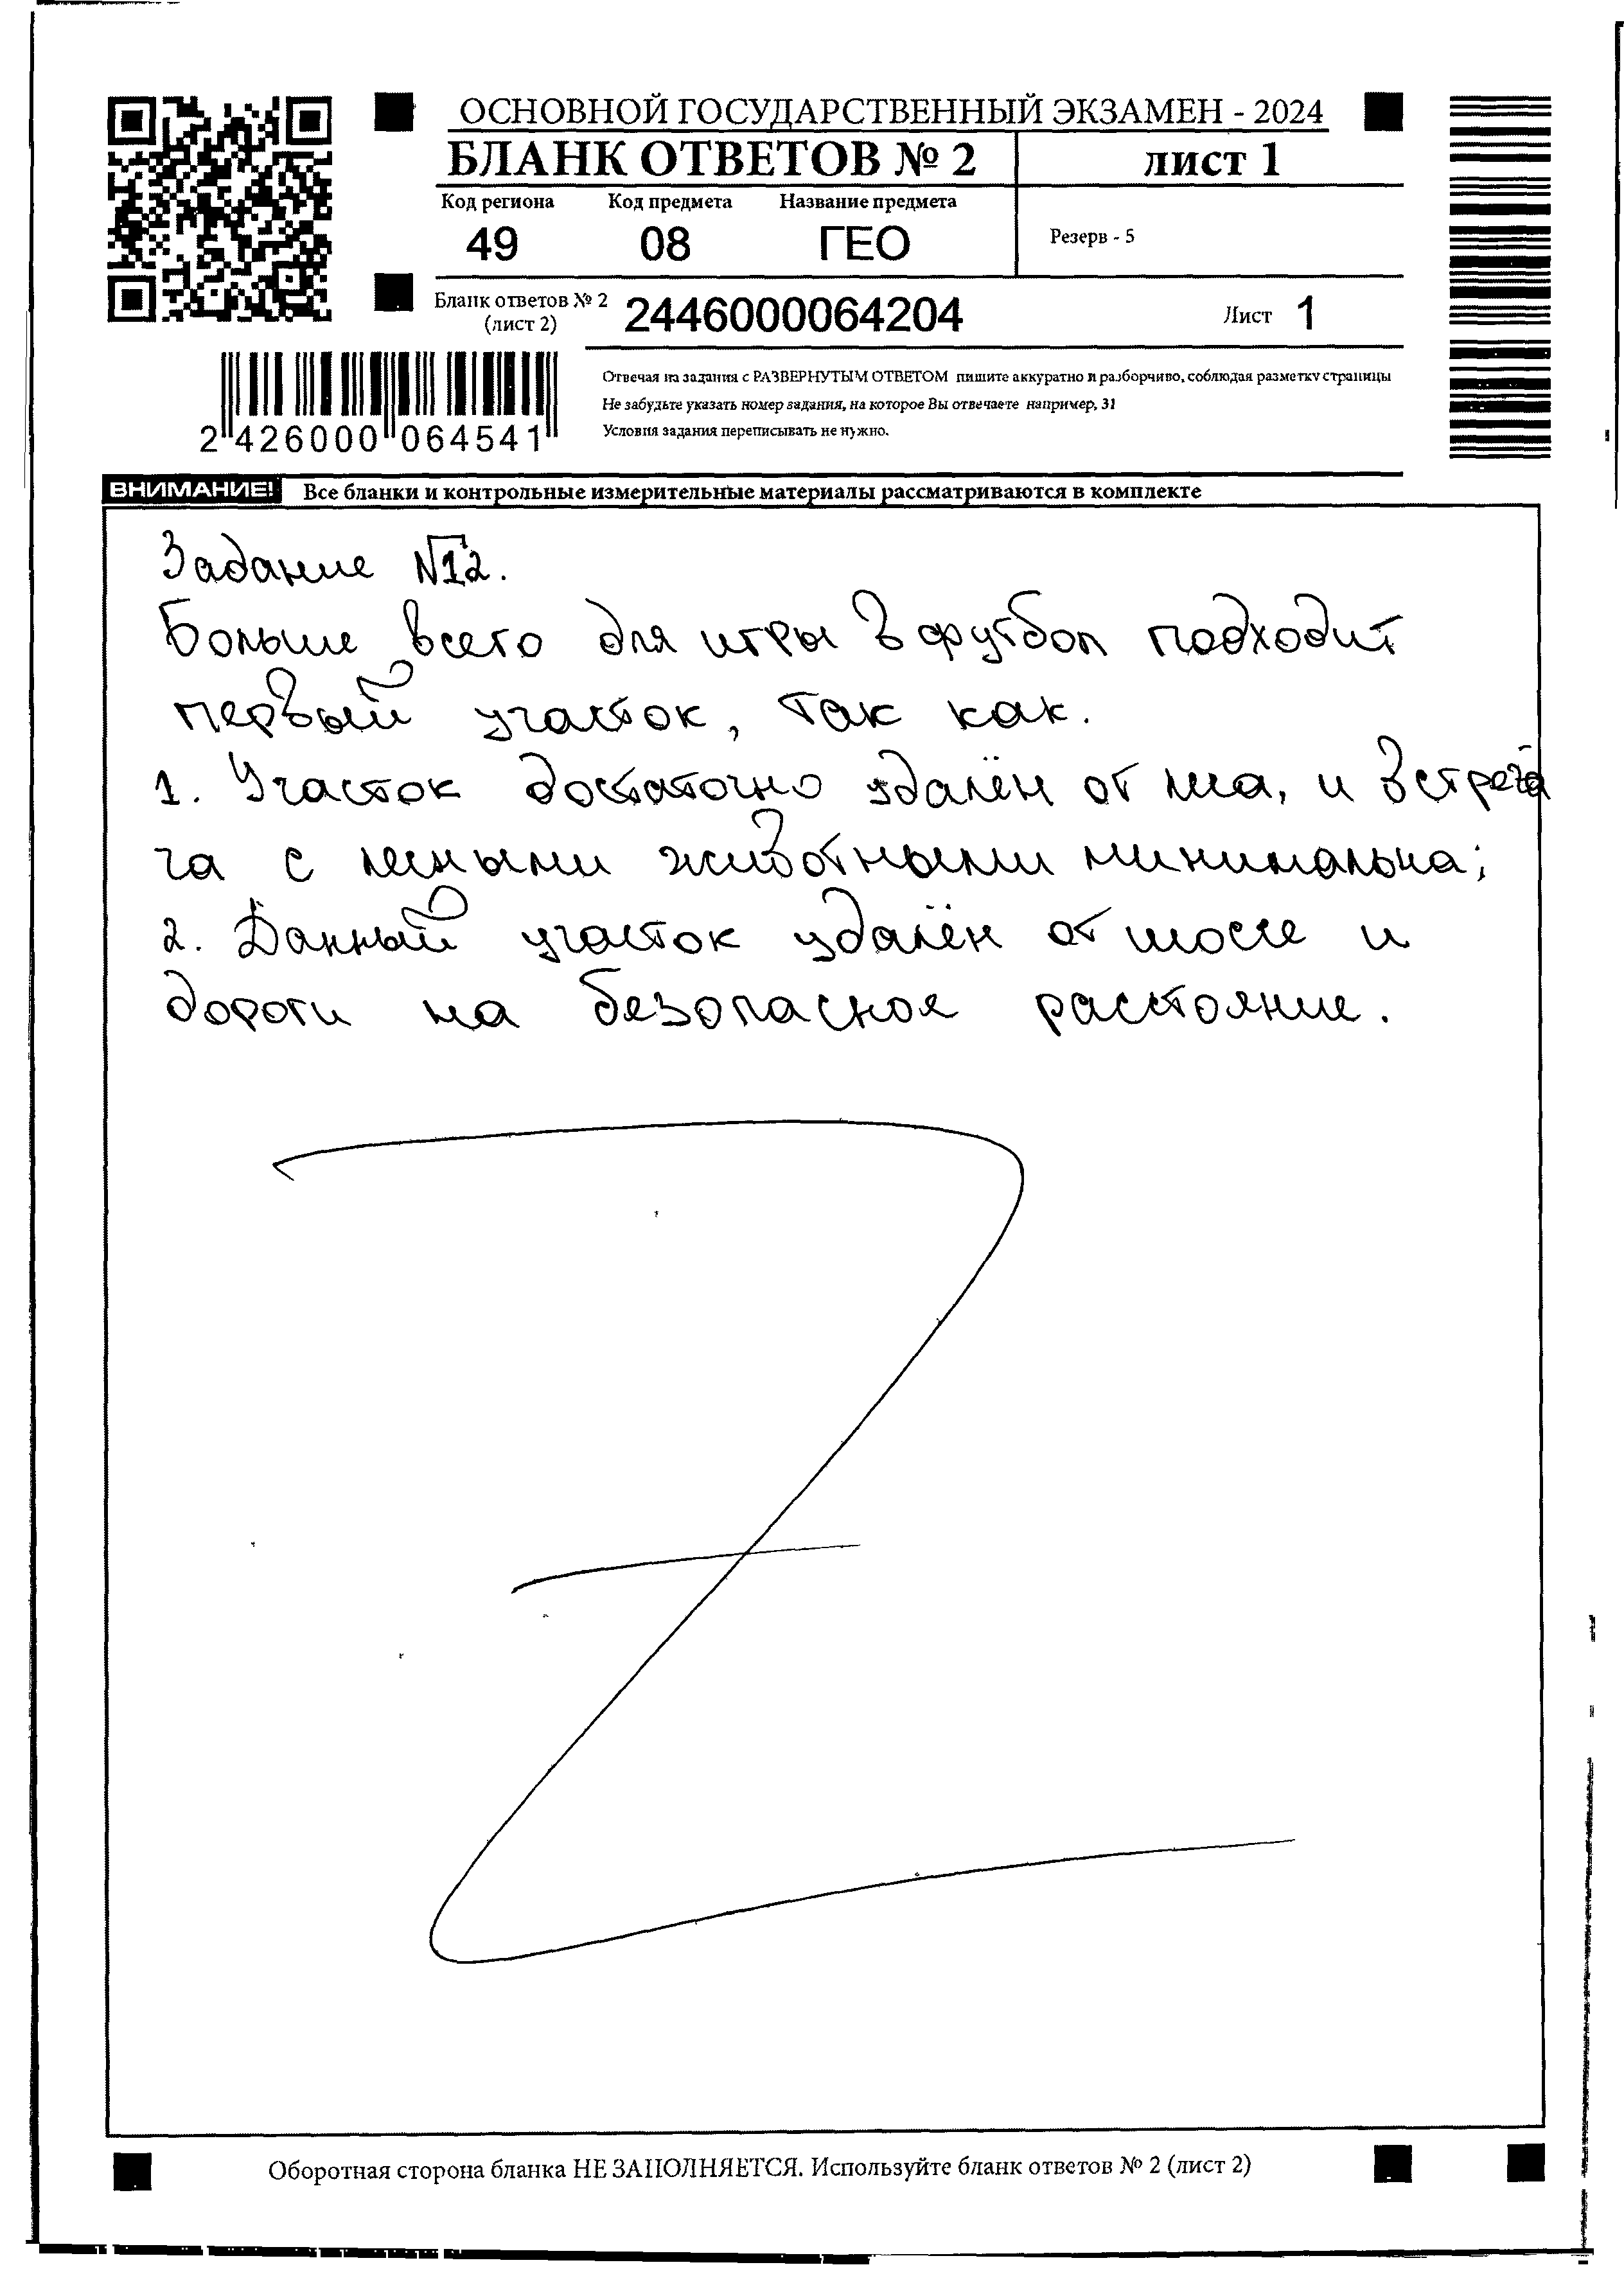 ОСНОВНОЙ ГОСУДАРСТВЕННЫЙ ЭКЗАМЕН - 2024
БЛАНК ОТВЕТОВ № 2 лист 1
Код региона Код предмета Название предмета
49 08 ГЕО Резерв - 5
Бланк ответов № 2
(лист 2) 2446000064204 Лист 1
Отвечая на задания с РАЗВЕРНУТЫМ ОТВЕТОМ пишите аккуратно и разборчиво, соблюдая разметку страницы
Не забудьте указать номер задания, на которое Вы отвечаете например, 31
Условия задания переписывать не нужно.
2 426000 064541
ВНИМАНИЕ! Все бланки и контрольные измерительные материалы рассматриваются в комплекте
Задание №12.
Больше всего для игры в футбол подходит
первый участок, так как.
1. Участок достаточно удалён от леса, и встре
ча с лесными животными минимальна;
2. Данный участок удалён от шоссе и
дороги на безопасное расстояние.
Оборотная сторона бланка НЕ ЗАПОЛНЯЕТСЯ. Используйте бланк ответов № 2 (лист 2)